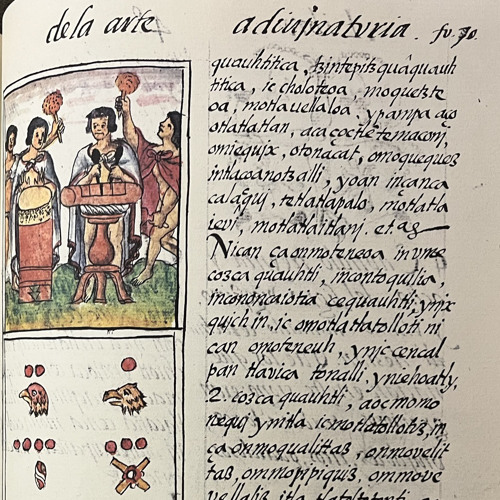 de la arte adiujnatoria. fo. 70.
quauhtitica,
titica, ic choloteoa, moquetzte
oa, motlavellaloa. ypampa aço
otlatlatlan, aca çoctle temaconj,
omiequjx, otonacat, omoquequez
intlacoanotzalli, yoan
calaquj, tetlatlapalo, motlatla
ievi, motlatlaitlanj. et ag
Nican ça onmoteneoa in vnce
cozca quauhtli, incontoquilia,
inconcaiotia ce quauhtli, ynjx
qujch in, ic omotlatlatolloti nj
can omoteneuh, ynjc cencal
pan tlavica tonalli, ynicehoatly,
2. cozca quauhtli, aocmono
nequj ymtla, ic motlatollotiz, in
ca onmoqualitaz, onmovelit
taz, ommopipiquiz, ommove
vellaliz, itla